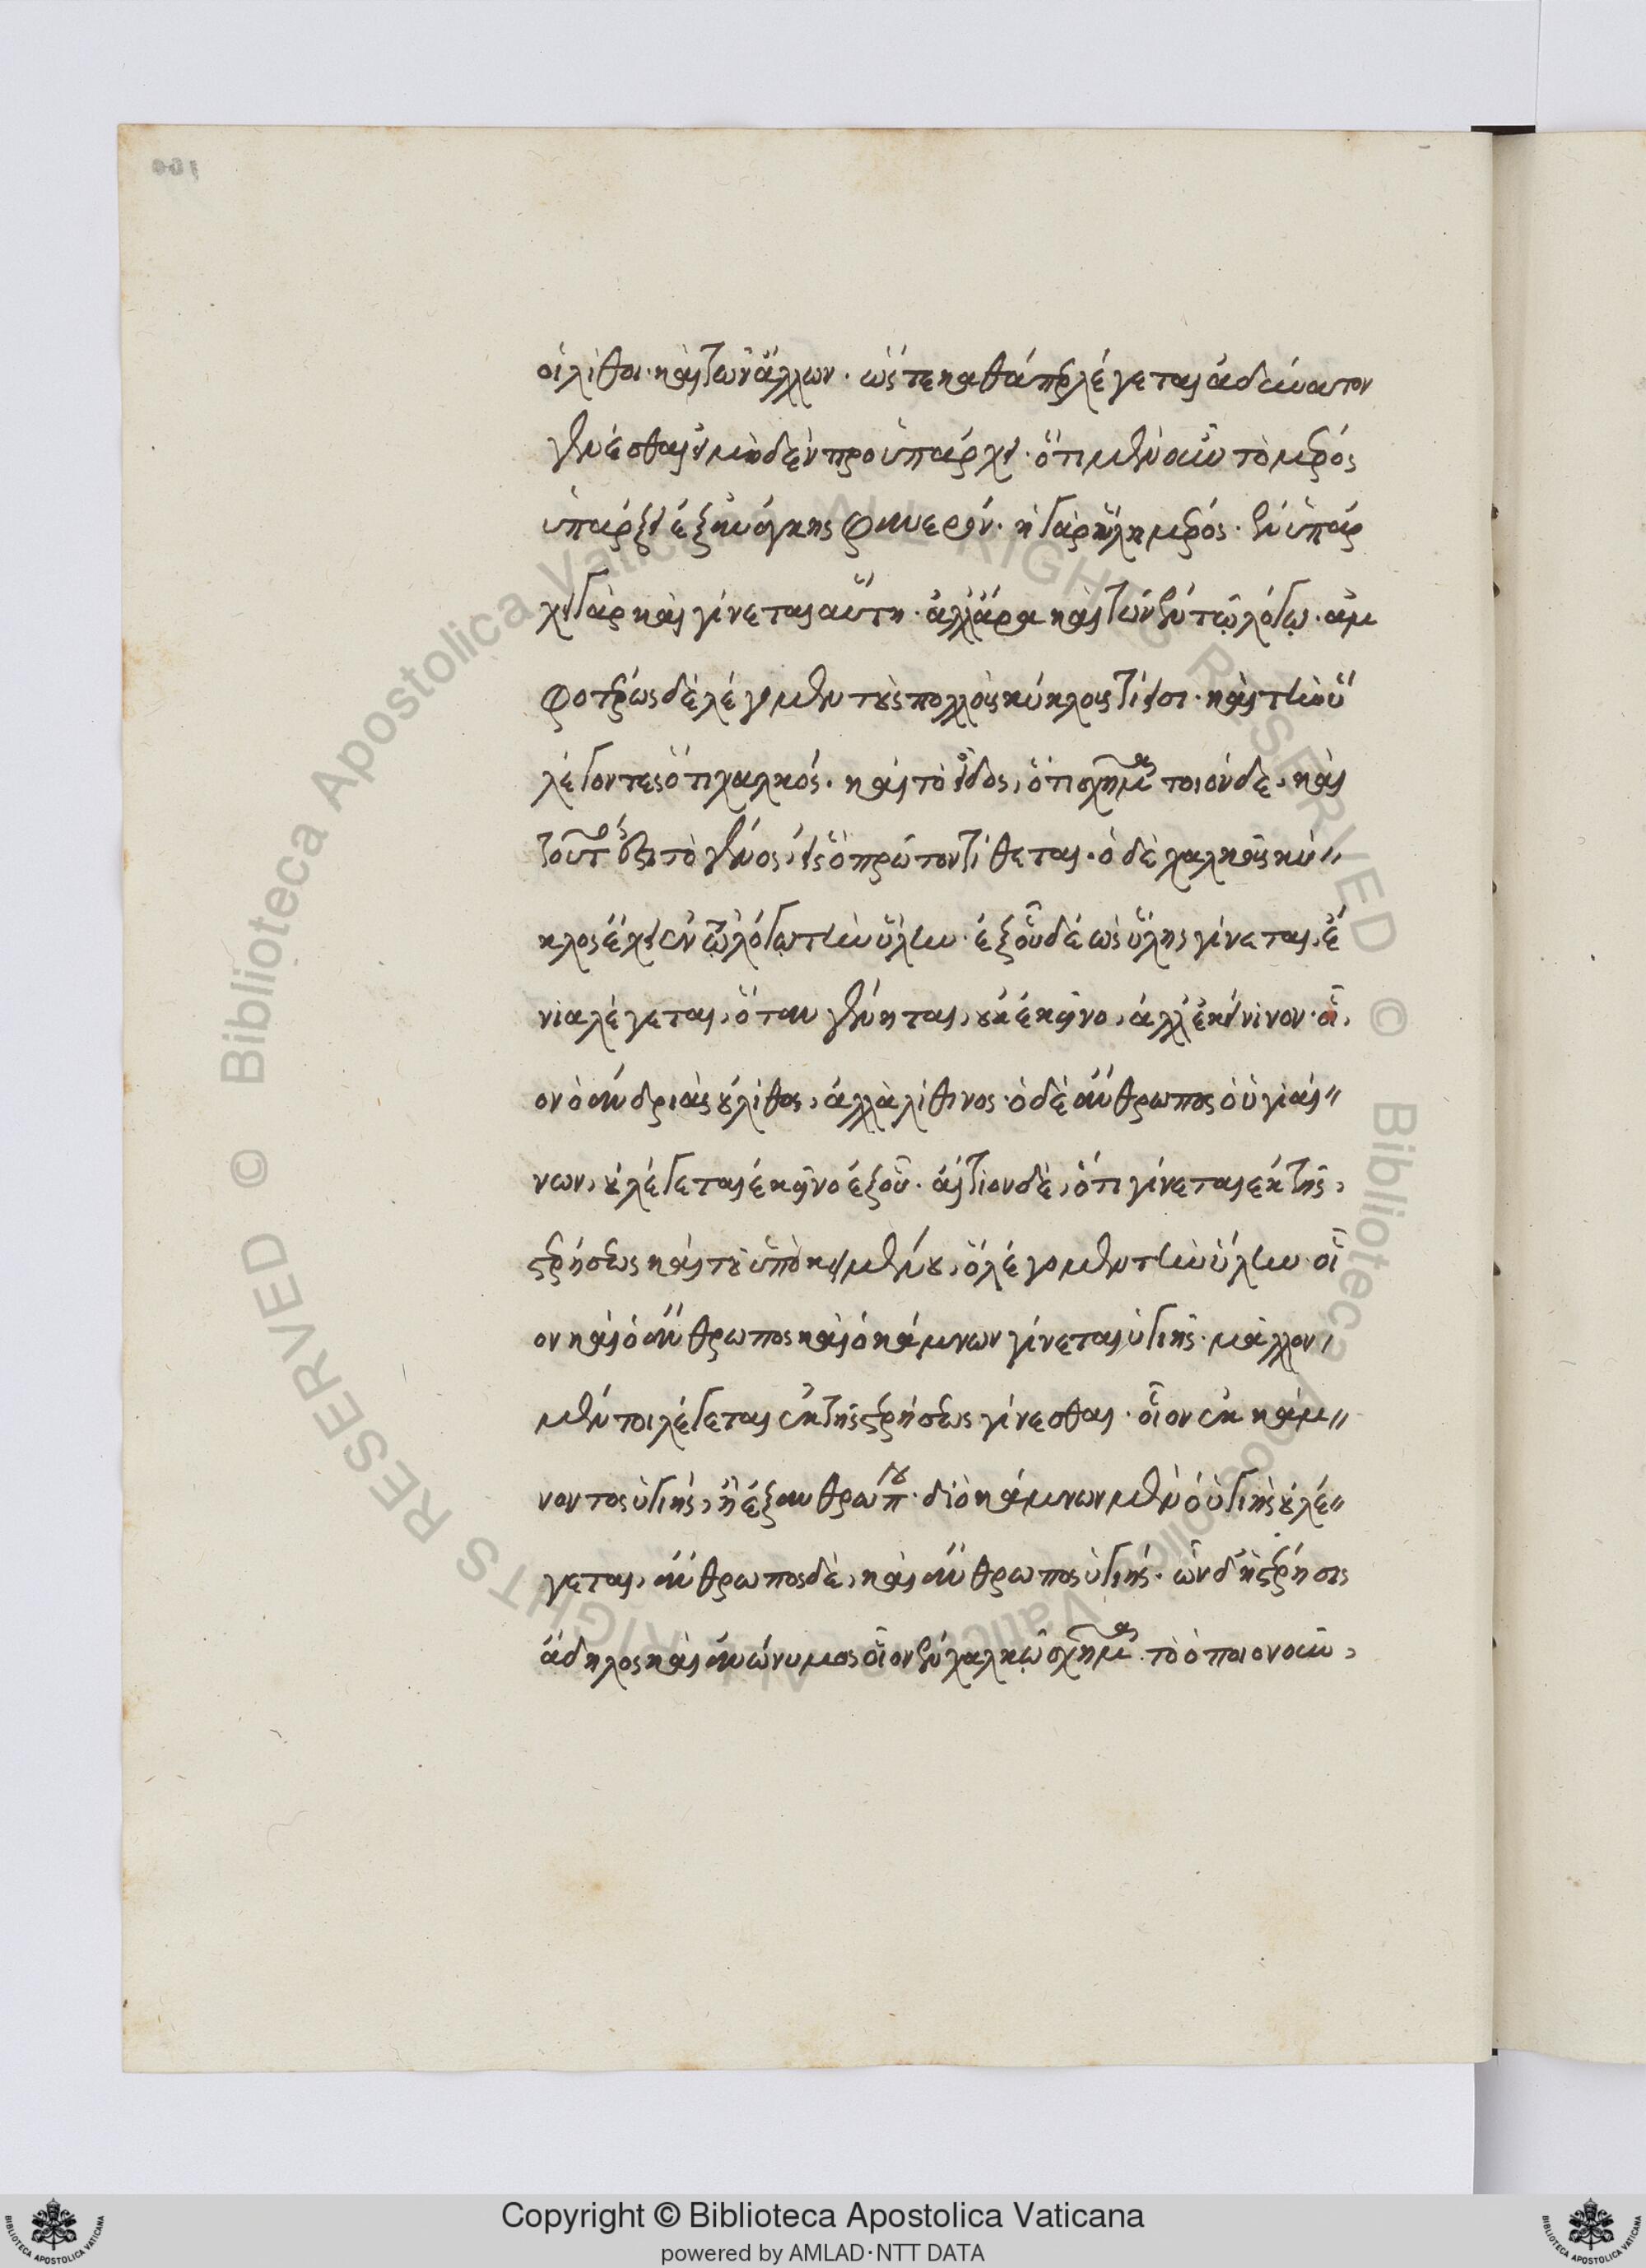 οἱ λίθοι· καὶ τῶν ἄλλων· ὥστε καθάπερ λέγεται ἀδύνατον
γενέσθαι εἰ μηδὲν προϋπάρχει· ὅτι μὲν οὖν τὸ μέρος
ὑπάρξει ἐξ ἀνάγκης φανερόν· ἡ γὰρ ὕλη μέρος· ἐνυπάρ
χει γὰρ καὶ γίνεται αὕτη· ἀλλ' ἄρα καὶ τῶν ἐν τῷ λόγῳ· ἀμ
φοτέρως δὲ λέγομεν τοὺς πολλοὺς κύκλους τί εἰσι· καὶ τὴν ὕ
λέγοντες ὅτι χαλκός· καὶ τὸ εἶδος, ὅτι σχῆμα τοιόνδε, καὶ
τοῦτό ἐστι τὸ γένος, εἰς ὃ πρῶτον τίθεται· ὁ δὲ χαλκοῦς κύ
κλος ἔχει ἐν τῷ λόγῳ τὴν ὕλην· ἐξ οὗ δὲ ὡς ὕλης γίνεται, ἔ
νια λέγεται, ὅταν γένηται, οὐκ ἐκεῖνο, ἀλλ' ἐκείνινον· οἷ,
ον ὁ ἀνδριὰς οὐ λίθος, ἀλλὰ λίθινος· ὁ δὲ ἄνθρωπος ὁ ὑγιαί
νων, οὐ λέγεται ἐκεῖνο ἐξ οὗ· αἴτιον δὲ, ὅτι γίνεται ἐκ τῆς,
στερήσεως καὶ τοῦ ὑποκειμένου, ὃ λέγομεν τὴν ὕλην· οἷ
ον καὶ ὁ ἄνθρωπος καὶ ὁ κάμνων γίνεται ὑγιής· μᾶλλον,
μέντοι λέγεται ἐκ τῆς στερήσεως γίνεσθαι· οἷον ἐκ κάμ
νοντος ὑγιής, ἢ ἐξ ἀνθρώπου· διὸ κάμνων μὲν ὁ ὑγιὴς οὐ λέ
γεται, ἄνθρωπος δὲ, καὶ ἄνθρωπος ὑγιής· ὧν δ' ἡ στέρησις
ἄδηλος καὶ ἀνώνυμος οἷον ἐν χαλκῷ σχῆμα τὸ ὁποιονοῦν,
Copyright © Biblioteca Apostolica Vaticana
powered by AMLAD·NTT DATA